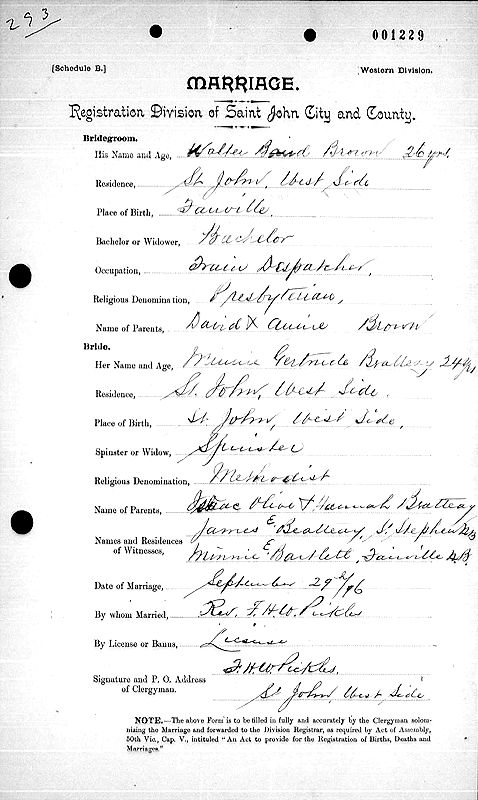 293
001229
[Schedule B.]
Western Division.
MARRIAGE.
Registration Division of Saint John City and County.
Bridegroom.
His Name and Age, Walter Baird Brown 26 yrs.
Residence, St John, West Side
Place of Birth, Fairville.
Bachelor or Widower, Bachelor
Occupation, Train Despatcher,
Religious Denomination, Presbyterian,
Name of Parents, David & Annie Brown
Bride.
Her Name and Age, Minnie Gertrude 24 yrs
Residence, St. John, West Side.
Place of Birth, St. John, West Side,
Spinster or Widow, Spinster
Religious Denomination, Methodist
Name of Parents, Isaac Olive & Hannah
Names and Residences of Witnesses, James E. St. Stephen N.B.
Minnie E. Bartlett, Fairville N.B.
Date of Marriage, September 29th/96
By whom Married, Rev. F. H. W. Pickles
By License or Banns, License
Signature and P. O. Address of Clergyman. F. H. W. Pickles.
St John, West Side
NOTE.—The above Form is to be filled in fully and accurately by the Clergyman solem-
nizing the Marriage and forwarded to the Division Registrar, as required by Act of Assembly,
50th Vic., Cap. V., intituled "An Act to provide for the Registration of Births, Deaths and
Marriages."